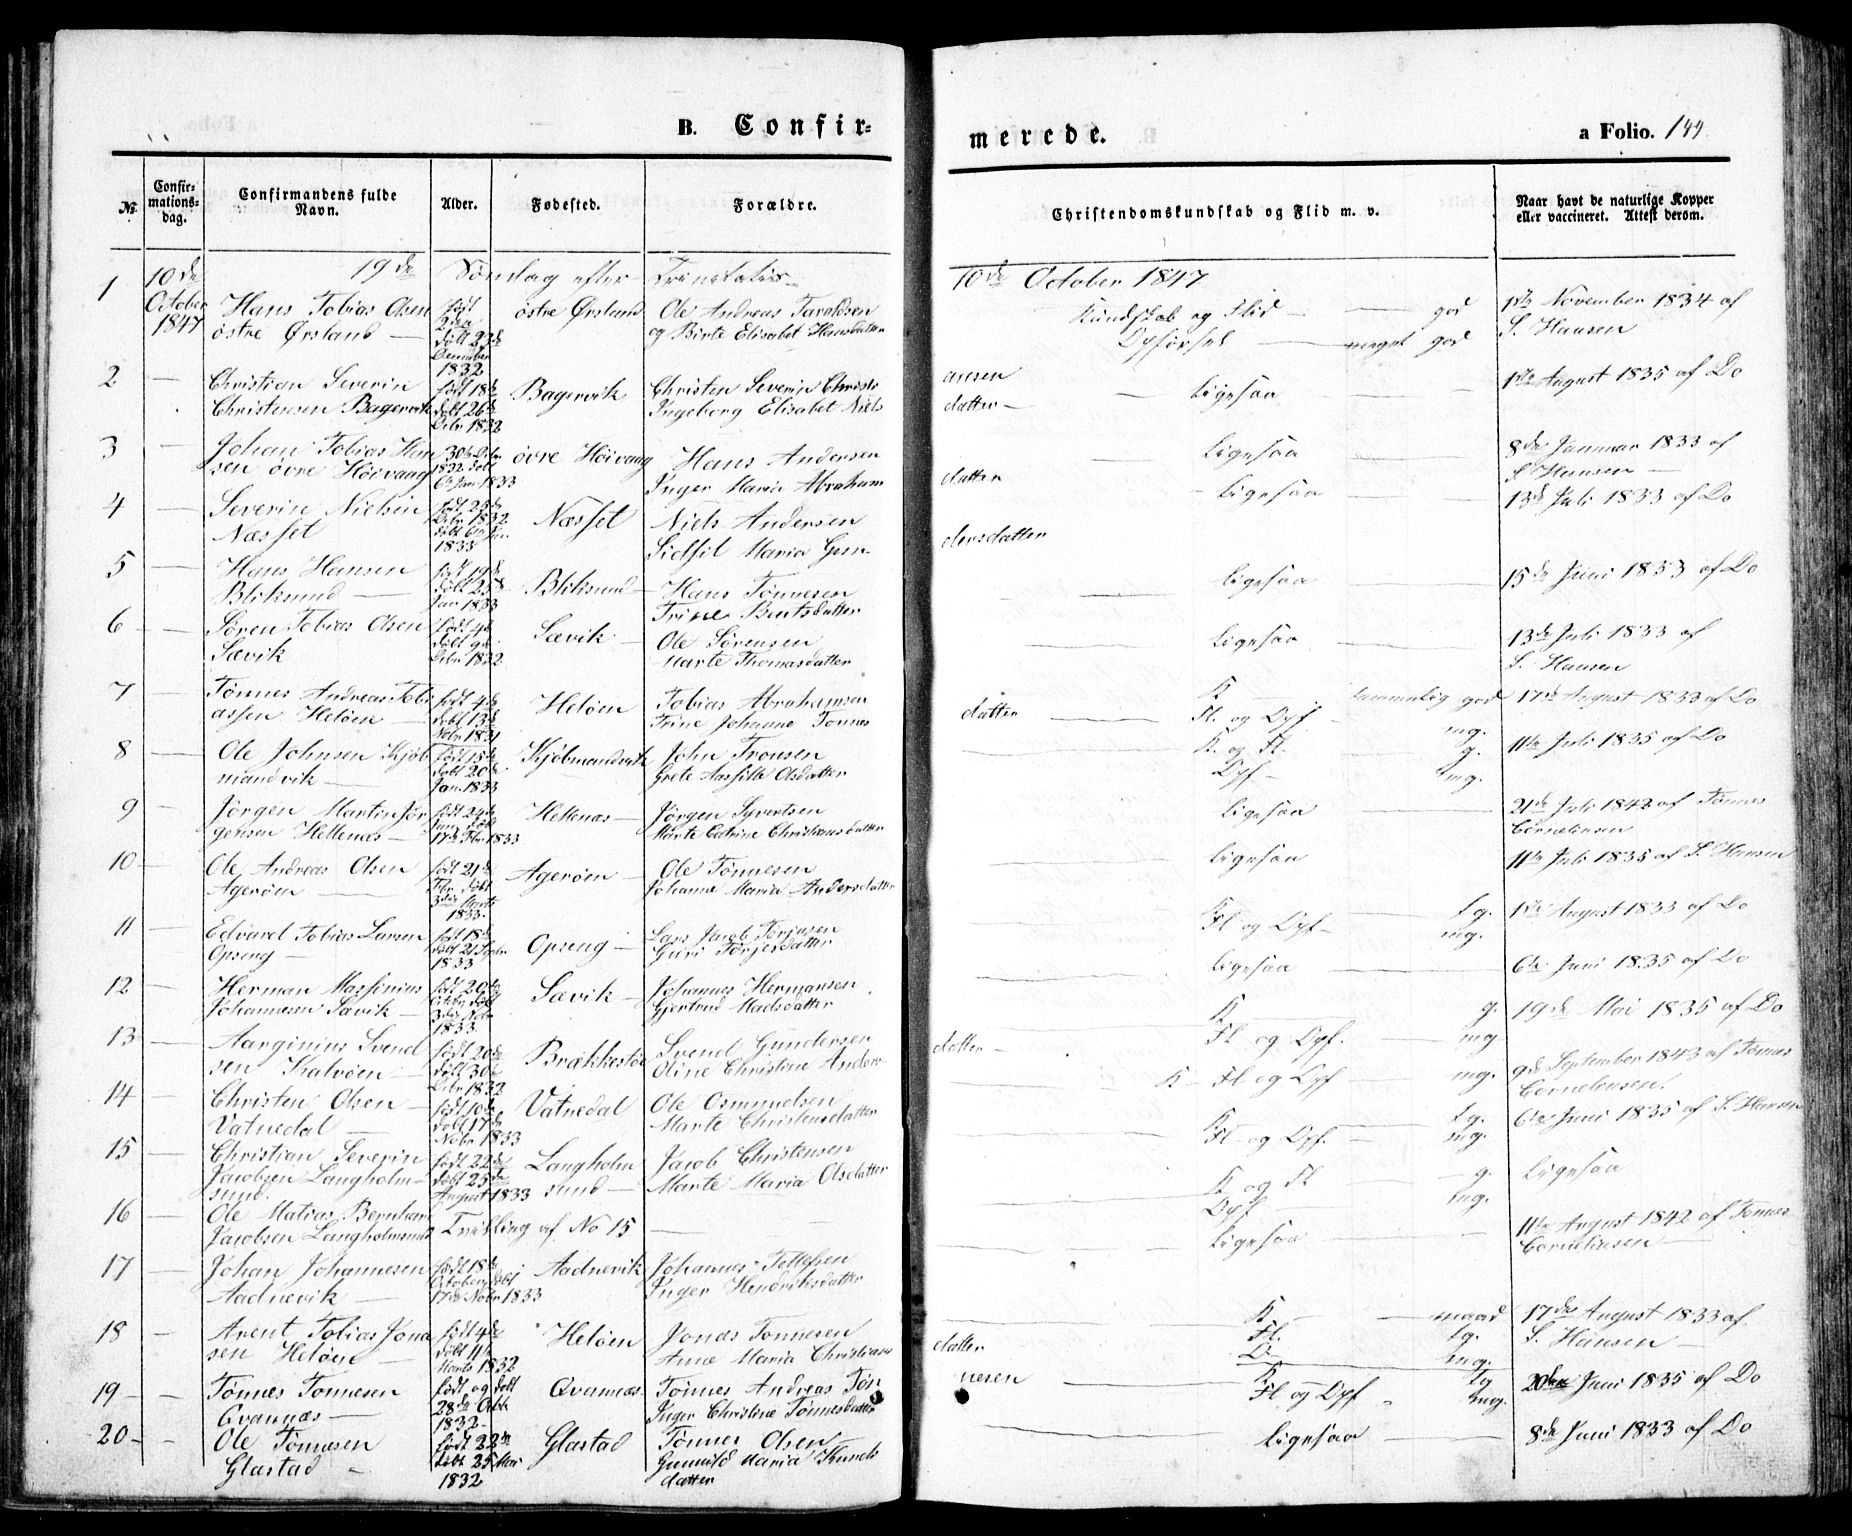 B. Confir=
merede.
a Folio. 144
№
Confir=
mations=
dag.
Confirmandens fulde
Navn.
Alder.
Fødested.
Forældre.
Christendomskundskab og Flid m. v.
Naar havt de naturlige Kopper
eller vaccineret. Attest derom.
10de October 1847
19de Søndag efter Trinitatis
10de October 1847
1 Hans Tobias Olsen
østre Ørsland
født 2den
døbt 23de
December
1832
østre Ørsland
Ole Andreas Taraldsen
og Birte Elisabet Hansdatter
Kundskab og Flid god
Opførsel meget god
1ste November 1834 af
S. Hansen
2 Christian Severin
Christensen Bagervik
født 18de
døbt 26de
Debr 1832
Bagervik
Christen Severin Christi
ansen
Ingeborg Elisabet Niels
datter
Ligesaa
1ste August 1835 af Do
3 Johan Tobias Han
sen øvre Höivaag
30te Debr
1832 døbt
6te Jan 1833
øvre Höivaag
Hans Andersen
Inger Maria Abraham
datter
Ligesaa
8de Januar 1833 af
S. Hansen
4 Severin Nielsen
Næsset
født 25de
Debr 1832
døbt 6te Jan
1833
Næsset
Niels Andersen
Sidsel Maria Gun
dersdatter
Ligesaa
13de Juli 1833 af Do
5 Hans Hansen
Bliksund
født 19de
døbt 25de
Jan 1833
Bliksund
Hans Tønnesen
Trine Bentsdatter
Ligesaa
15de Juni 1833 af Do
6 Søren Tobias Olsen
Sævik
født 4de
døbt 9de
Debr 1832
Sævik
Ole Sørensen
Marte Thomasdatter
Ligesaa
13de Juli 1833 af
S. Hansen
7 Tønnes Andreas Tobi
assen Heløen
født 4de
døbt 13de
Nobr 1831
Heløen
Tobias Abrahamsen
Trine Johanne Tönnes
datter
K. temmelig god
Fl. og Opf. mg.
17de August 1833 af Do
8 Ole Johnsen Kjöb
mandvik
født 15de
døbt 20de
Jan. 1833
Kjöbmandvik
John Tronsen
Grete Aasille Olsdatter
K. og Fl. g.
Opf mg.
11te Juli 1835 af Do
9 Jörgen Martin Jör
gensen Hellenæs
født 24de
Janr døbt
17de Fbr 1833
Hellenæs
Jörgen Syvertsen
Marte Catrine Christiansdatter
Ligesaa
21de Juli 1842 af Tönnes
Corneliusen
10 Ole Andreas Olsen
Agerøen
født 21de
Fbr døbt
3die Marts
1833.
Agerøen
Ole Tönnesen
Johanne Maria Andersdatter
Ligesaa
11te Juli 1835 af S. Hansen
11 Edvard Tobias Larsen
Opseng
født 18de
døbt 21 Sepbr
1833
Opseng
Lars Jacob Torjusen
Guri Torjesdatter
K tg.
Fl og Opf mg.
1ste August 1833 af Do
12 Herman Massinius
Johannesen Sævik
født 20de
Octobr døbt
3die Nobr
1833
Sævik
Johannes Hermansen
Gjertrud Madsdatter
Ligesaa
6te Juni 1835 af Do
13 Aarginius Svend
sen Kalvøen
født 20de
døbt 30te
Debr 1832
Brækkestöe
Svend Gundersen
Oline Christine Anders
datter
K g.
Fl og Opf. mg
19de Mai 1835 af Do
14 Christen Olsen
Vatnedal
født 10de
døbt 17de
Nobr 1833
Vatnedal
Ole Osmundsen
Marte Christensdatter
K Fl og Opf mg.
9de September 1843 af Tönnes
Corneliusen.
15 Christian Severin
Jacobsen Langholm
sund.
født 22de
døbt 25de
August 1833
Langholm
sund
Jacob Christensen
Marte Maria Olsdatter
K tg.
Fl og Opf. mg.
6te Juni 1835 af S. Hansen
16 Ole Matias Bernhard
Jacobsen Langholmsund
Tvilling af No 15
K og Fl g.
Opf mg.
Ligesaa
17 Johan Johannesen
Aadnevik
født 18de
October døbt
17de Nobr 1833
Aadnevik
Johannes Tellefsen
Inger Hendriksdatter
Ligesaa
11te August 1842 af Tönnes
Corneliusen
18 Arent Tobias Jona
sen Heløen
født 4de
døbt 11te
Marts 1832
Heløen
Jonas Tönnesen
Anne Maria Christians
datter
K maad
Fl. tg.
O mg.
17de August 1833 af
S. Hansen
19 Tønnes Tönnesen
Qvannæs
født og døbt
28de Octbr
1832
Qvannæs
Tønnes Andreas Tøn
nesen
Inger Christine Tønnesdatter
K tg
Fl og Opf mg.
20de Juni 1835 af Do
20 Ole Tönnesen
Glastad
født 22de
døbt 25 Mai
1832
Glastad
Tønnes Olsen
Gunnild Maria Knuds
datter
Ligesaa
8de Juni 1833 af Do